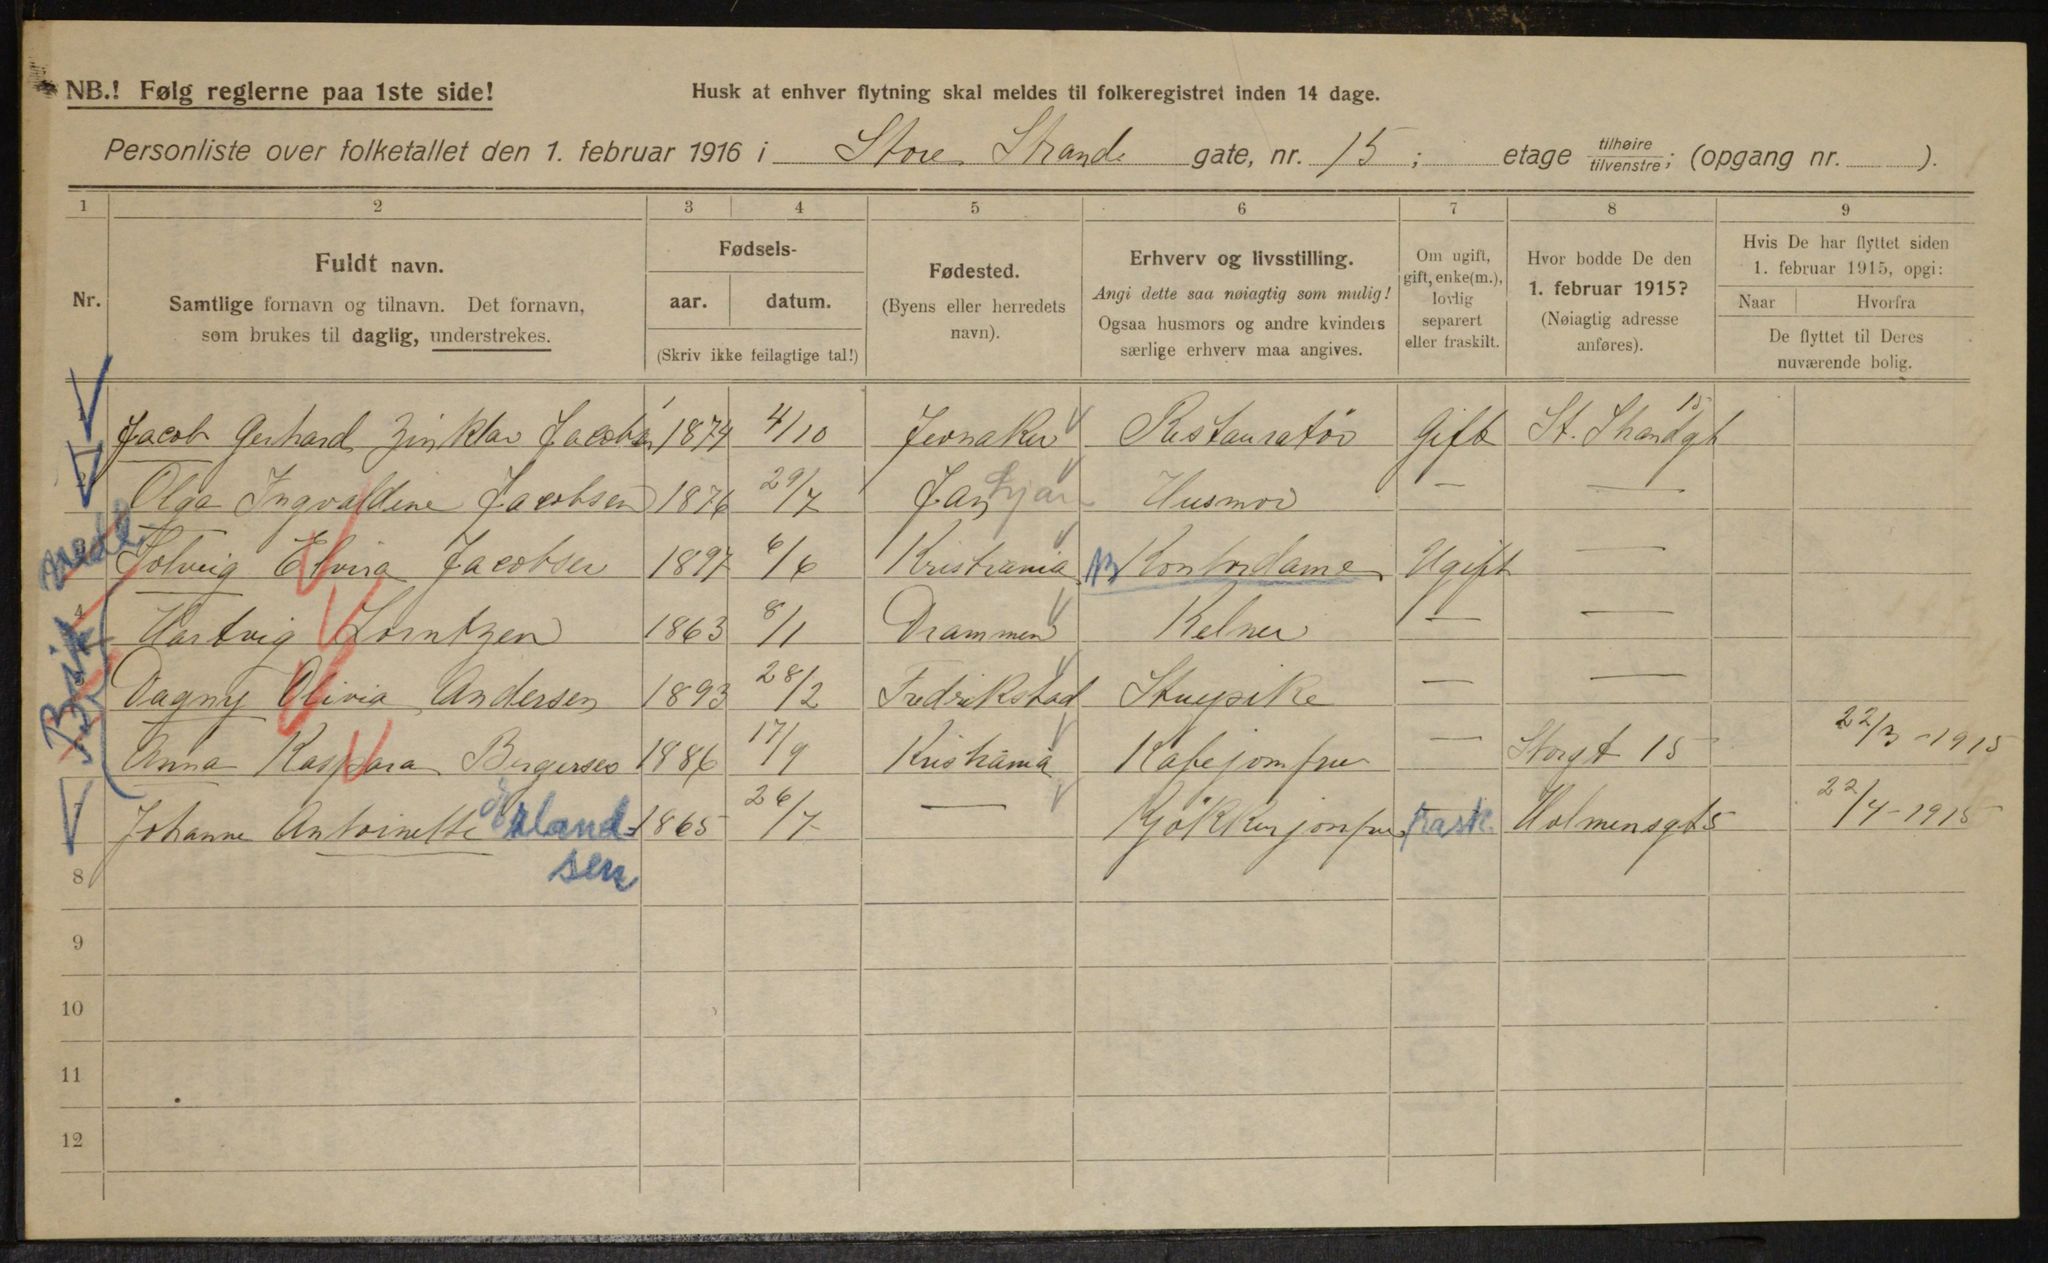 NB.! Følg reglerne paa 1ste side!
Husk at enhver flytning skal meldes til folkeregistret inden 14 dage.
Personliste over folketallet den 1. februar 1916 i Store Strand gate, nr. 15; etage tilhøire tilvenstre; (opgang nr. ).
1 2 3 4 5 6 7 8 9
Nr.
Fuldt navn.
Samtlige fornavn og tilnavn. Det fornavn,
som brukes til daglig, understrekes.
Fødsels-
aar. datum.
(Skriv ikke feilagtige tal!)
Fødested.
(Byens eller herredets
navn).
Erhverv og livsstilling.
Angi dette saa nøiagtig som mulig!
Ogsaa husmors og andre kvinders
særlige erhverv maa angives.
Om ugift,
gift, enke(m.),
lovlig
separert
eller fraskilt.
Hvor bodde De den
1. februar 1915?
(Nøiagtig adresse
anføres).
Hvis De har flyttet siden
1. februar 1915, opgi:
Naar Hvorfra
De flyttet til Deres
nuværende bolig.
Jacob Gerhard Zinklar Jacobsen 1874 4/10 Jevnaker Restauratör Gift St. Strandgt 15
2 Olga Ingvaldine Jacobsen 1876 29/7 Husmor — —
Solveig Elvira Jacobsen 1897 6/6 Kristiania Kontordame Ugift —
4 Hartvig Lorntzen 1863 8/1 Drammen Kelner — —
Dagny Olivia Andersen 1893 28/2 Fredrikstad Stuepike — —
Anna Kaspara Bergersen 1886 17/9 Kristiania Kafejomfru — Storgt 15 22/3-1915
Johanne Antoinette Erlandsen 1865 26/7 — Kjøkkenjomfru frask. Holmensgt 5 22/4-1915
8
9
10
11
12